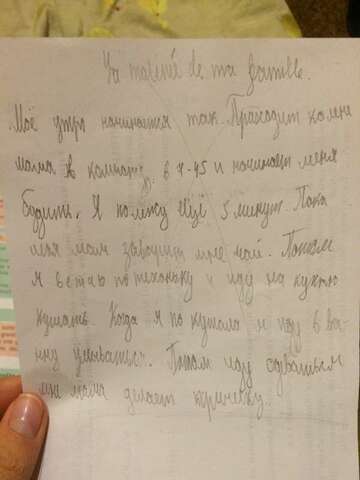 La matiné de ma famille.
Моё утро начинается так. Приходит ко мне
мама в комнату в 7-45 и начинает меня
будить. Я полежу ещё 5 минут. Пока
моя мам заварит мне чай. Потом
я встаю потехоньку и иду на кухню
кушать. Когда я по кушала я иду в ва-
ну умываться. Потом иду одеваться
мне мама делает причёску.